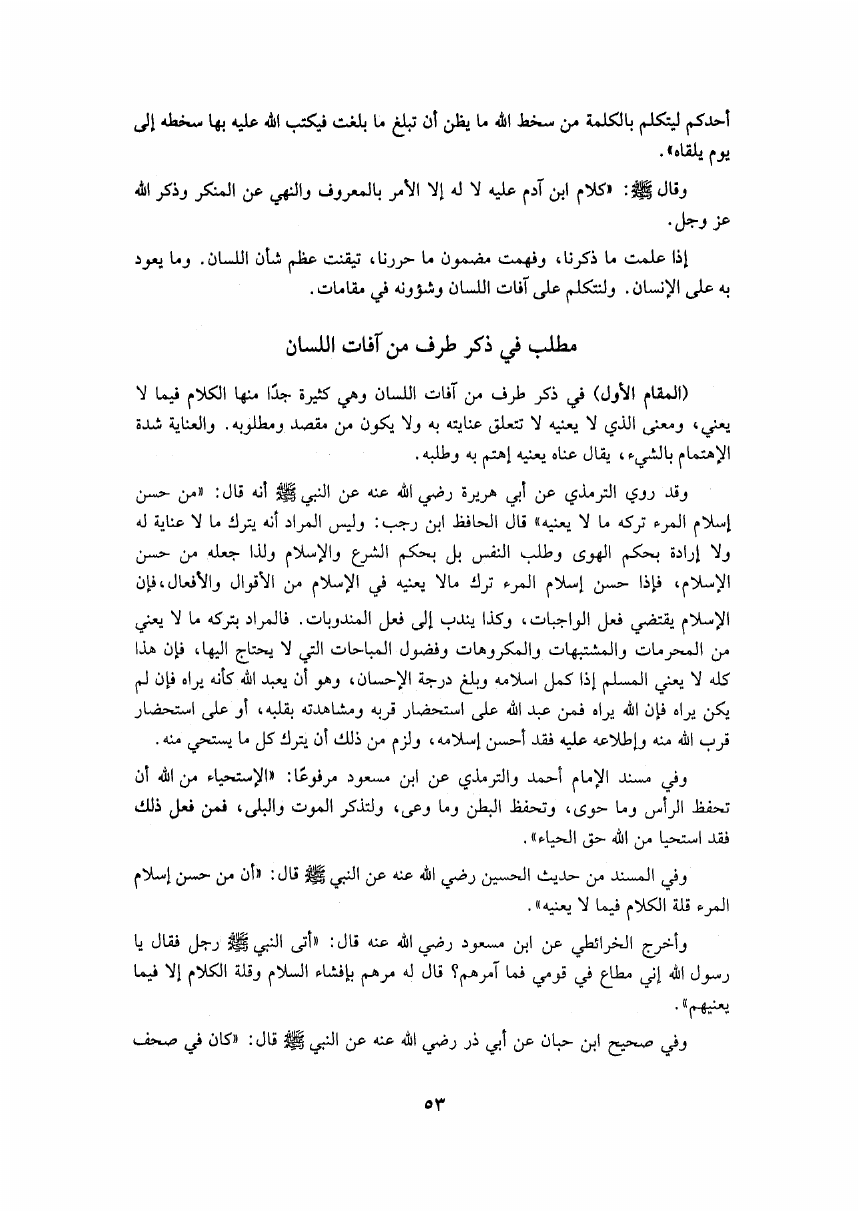 أحدكم ليتكلم بالكلمة من سخط الله ما يظن أن تبلغ ما بلغت فيكتب الله عليه بها سخطه إلى
يوم يلقاه».
وقال ﷺ: «كلام ابن آدم عليه لا له إلا الأمر بالمعروف والنهي عن المنكر وذكر الله
عز وجل.
إذا علمت ما ذكرنا، وفهمت مضمون ما حررنا، تيقنت عظم شأن اللسان. وما يعود
به على الإنسان. ولنتكلم على آفات اللسان وشؤونه في مقامات.
مطلب في ذكر طرف من آفات اللسان
(المقام الأول) في ذكر طرف من آفات اللسان وهي كثيرة جدًا منها الكلام فيما لا
يعني، ومعنى الذي لا يعنيه لا تتعلق عنايته به ولا يكون من مقصد ومطلوبه. والعناية شدة
الإهتمام بالشيء، يقال عناه يعنيه إهتم به وطلبه.
وقد روي الترمذي عن أبي هريرة رضي الله عنه عن النبي ﷺ أنه قال: «من حسن
إسلام المرء تركه ما لا يعنيه» قال الحافظ ابن رجب: وليس المراد أنه يترك ما لا عناية له
ولا إرادة بحكم الهوى وطلب النفس بل بحكم الشرع والإسلام ولذا جعله من حسن
الإسلام، فإذا حسن إسلام المرء ترك مالا يعنيه في الإسلام من الأقوال والأفعال،فإن
الإسلام يقتضي فعل الواجبات، وكذا يندب إلى فعل المندوبات. فالمراد بتركه ما لا يعني
من المحرمات والمشتبهات والمكروهات وفضول المباحات التي لا يحتاج اليها، فإن هذا
كله لا يعني المسلم إذا كمل اسلامه وبلغ درجة الإحسان، وهو أن يعبد الله كأنه يراه فإن لم
يكن يراه فإن الله يراه فمن عبد الله على استحضار قربه ومشاهدته بقلبه، أو على استحضار
قرب الله منه وإطلاعه عليه فقد أحسن إسلامه، ولزم من ذلك أن يترك كل ما يستحي منه.
وفي مسند الإمام أحمد والترمذي عن ابن مسعود مرفوعًا: «الإستحياء من الله أن
تحفظ الرأس وما حوى، وتحفظ البطن وما وعى، ولتذكر الموت والبلى، فمن فعل ذلك
فقد استحيا من الله حق الحياء».
وفي المسند من حديث الحسين رضي الله عنه عن النبي ﷺ قال: «أن من حسن إسلام
المرء قلة الكلام فيما لا يعنيه».
وأخرج الخرائطي عن ابن مسعود رضي الله عنه قال: «أتى النبي ﷺ رجل فقال يا
رسول الله إني مطاع في قومي فما آمرهم؟ قال له مرهم بإفشاء السلام وقلة الكلام إلا فيما
يعنيهم».
وفي صحيح ابن حبان عن أبي ذر رضي الله عنه عن النبي ﷺ قال: «كان في صحف
٥٣